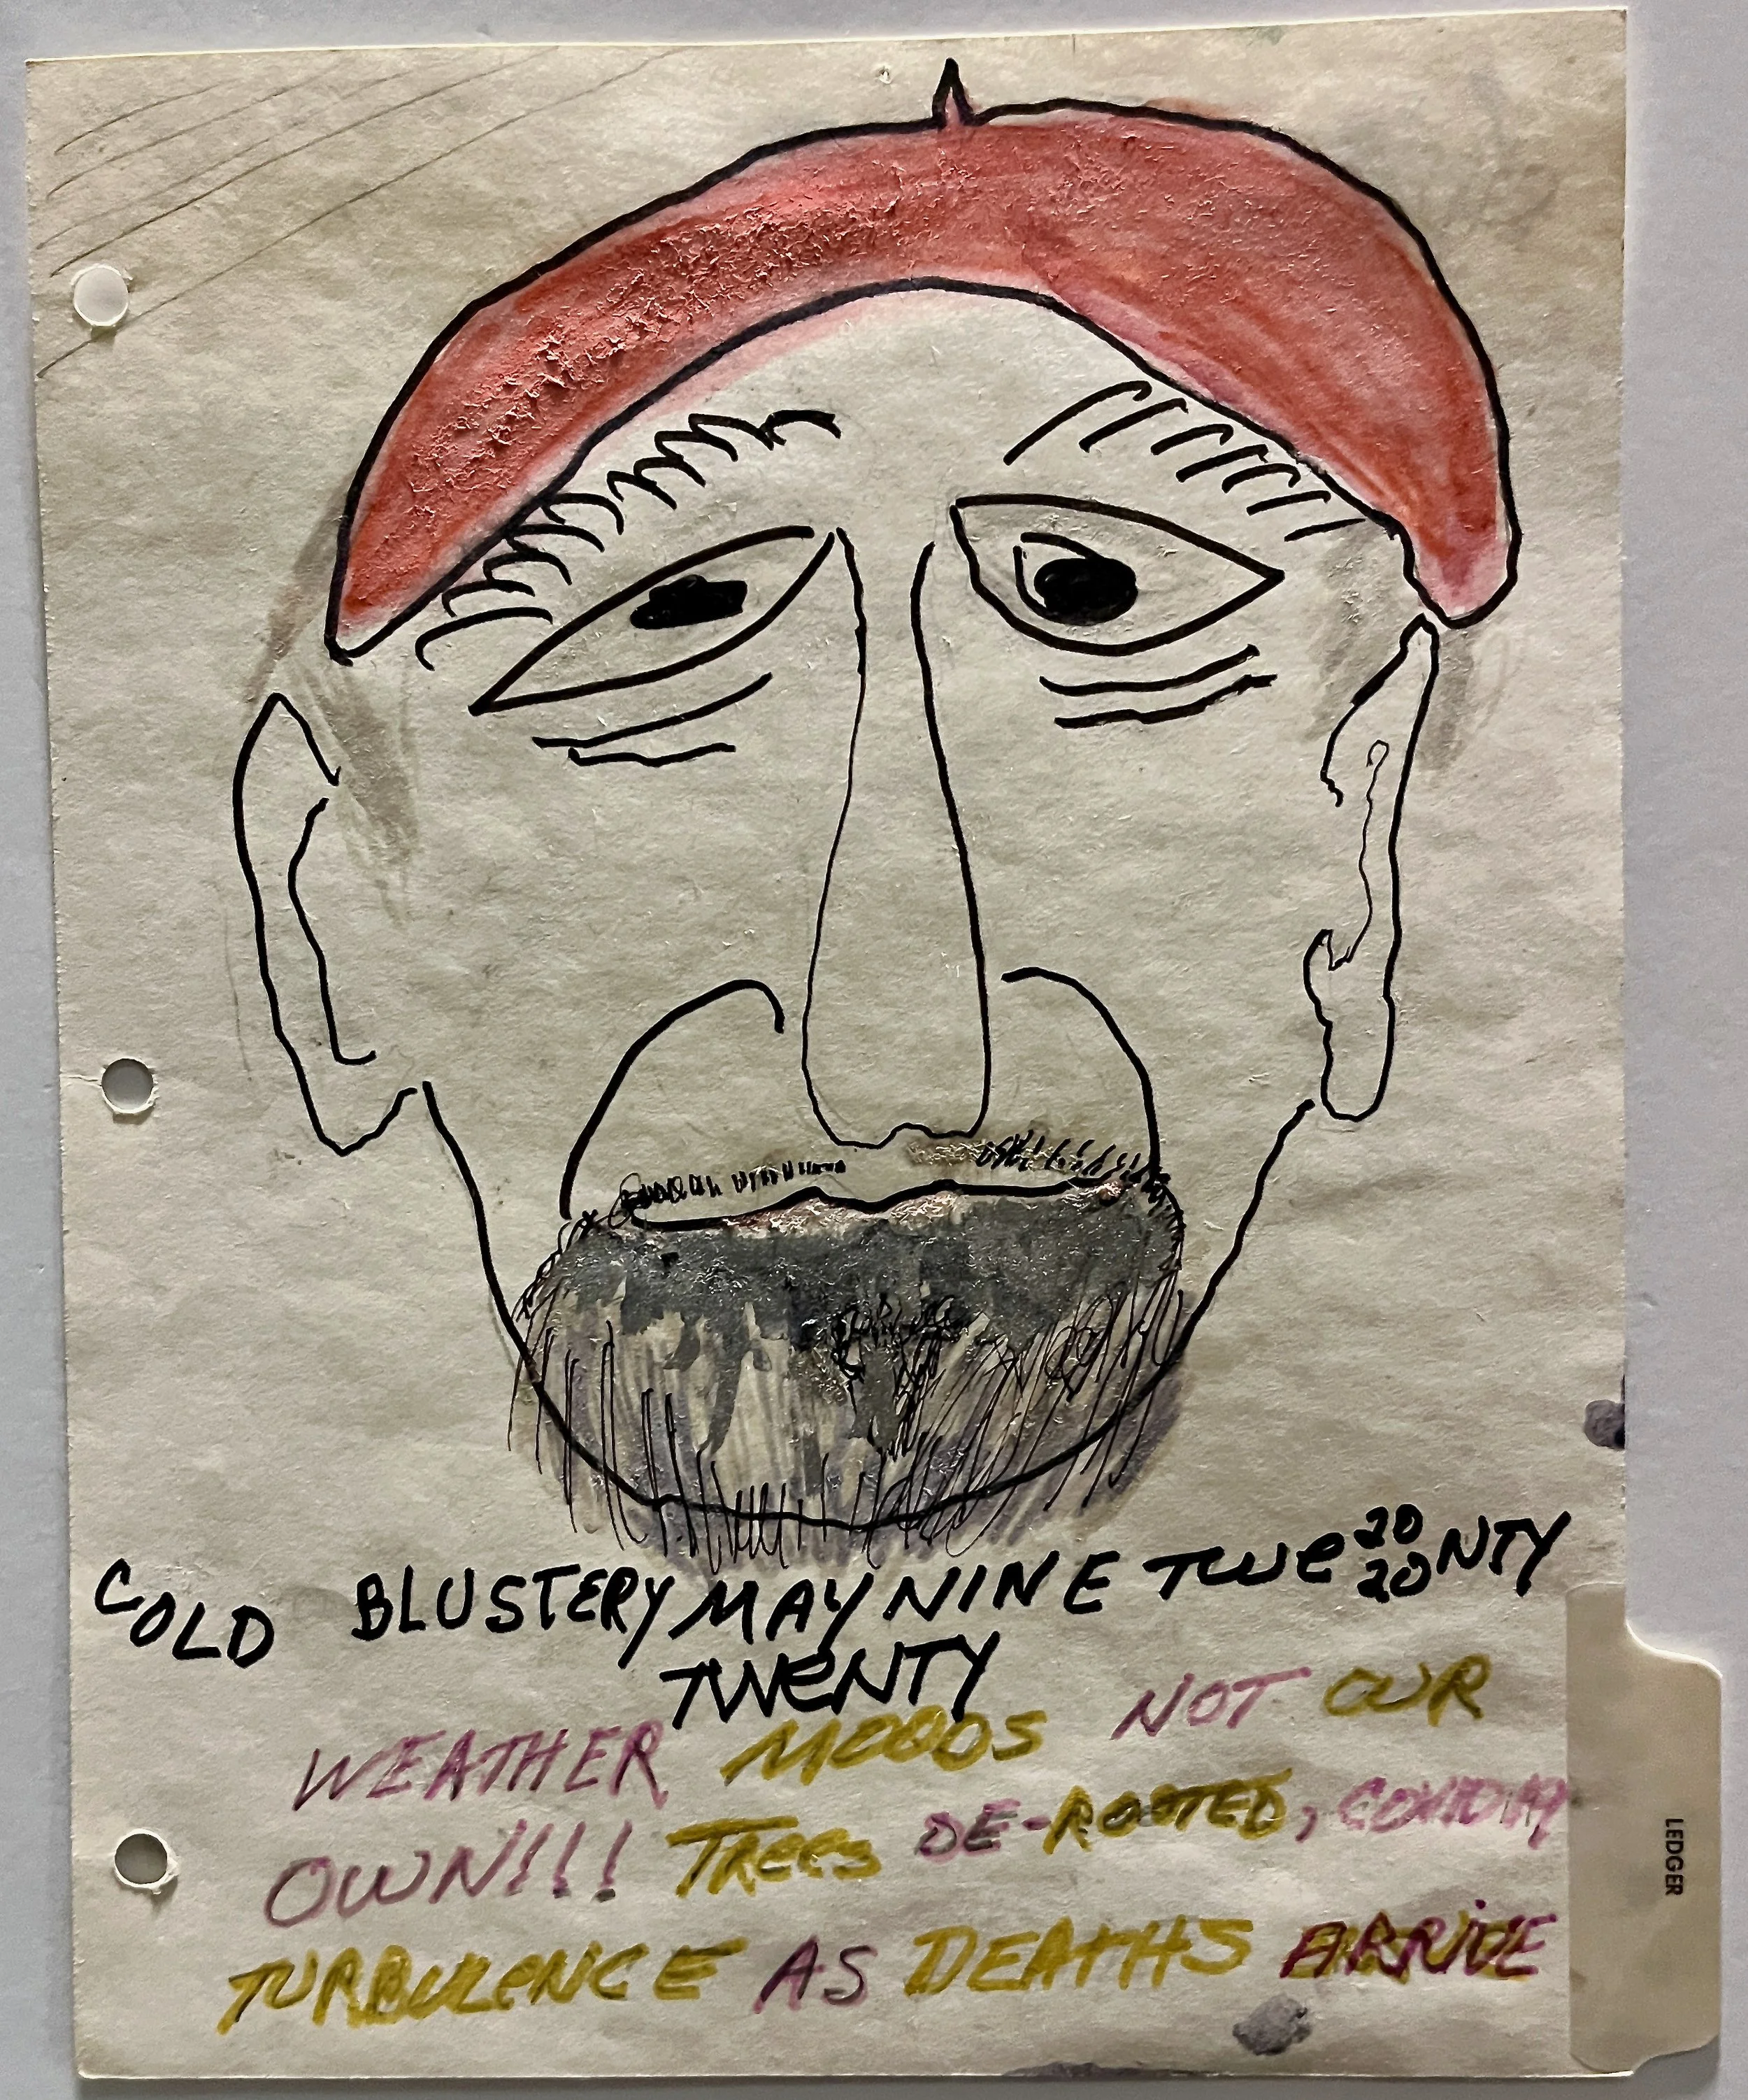 COLD BLUSTERY MAY NINE TWE 20 20 NTY
TWENTY
WEATHER MOODS NOT OUR
OWN!!! Trees DE-ROOTED, COVID 19
TURBULENCE AS DEATHS ARRIVE
LEDGER